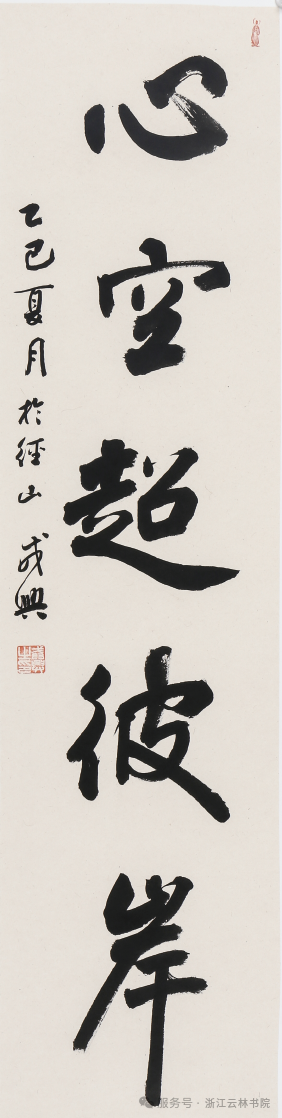 心空超彼岸
乙巳夏月於徑山成興
服务号·浙江云林书院